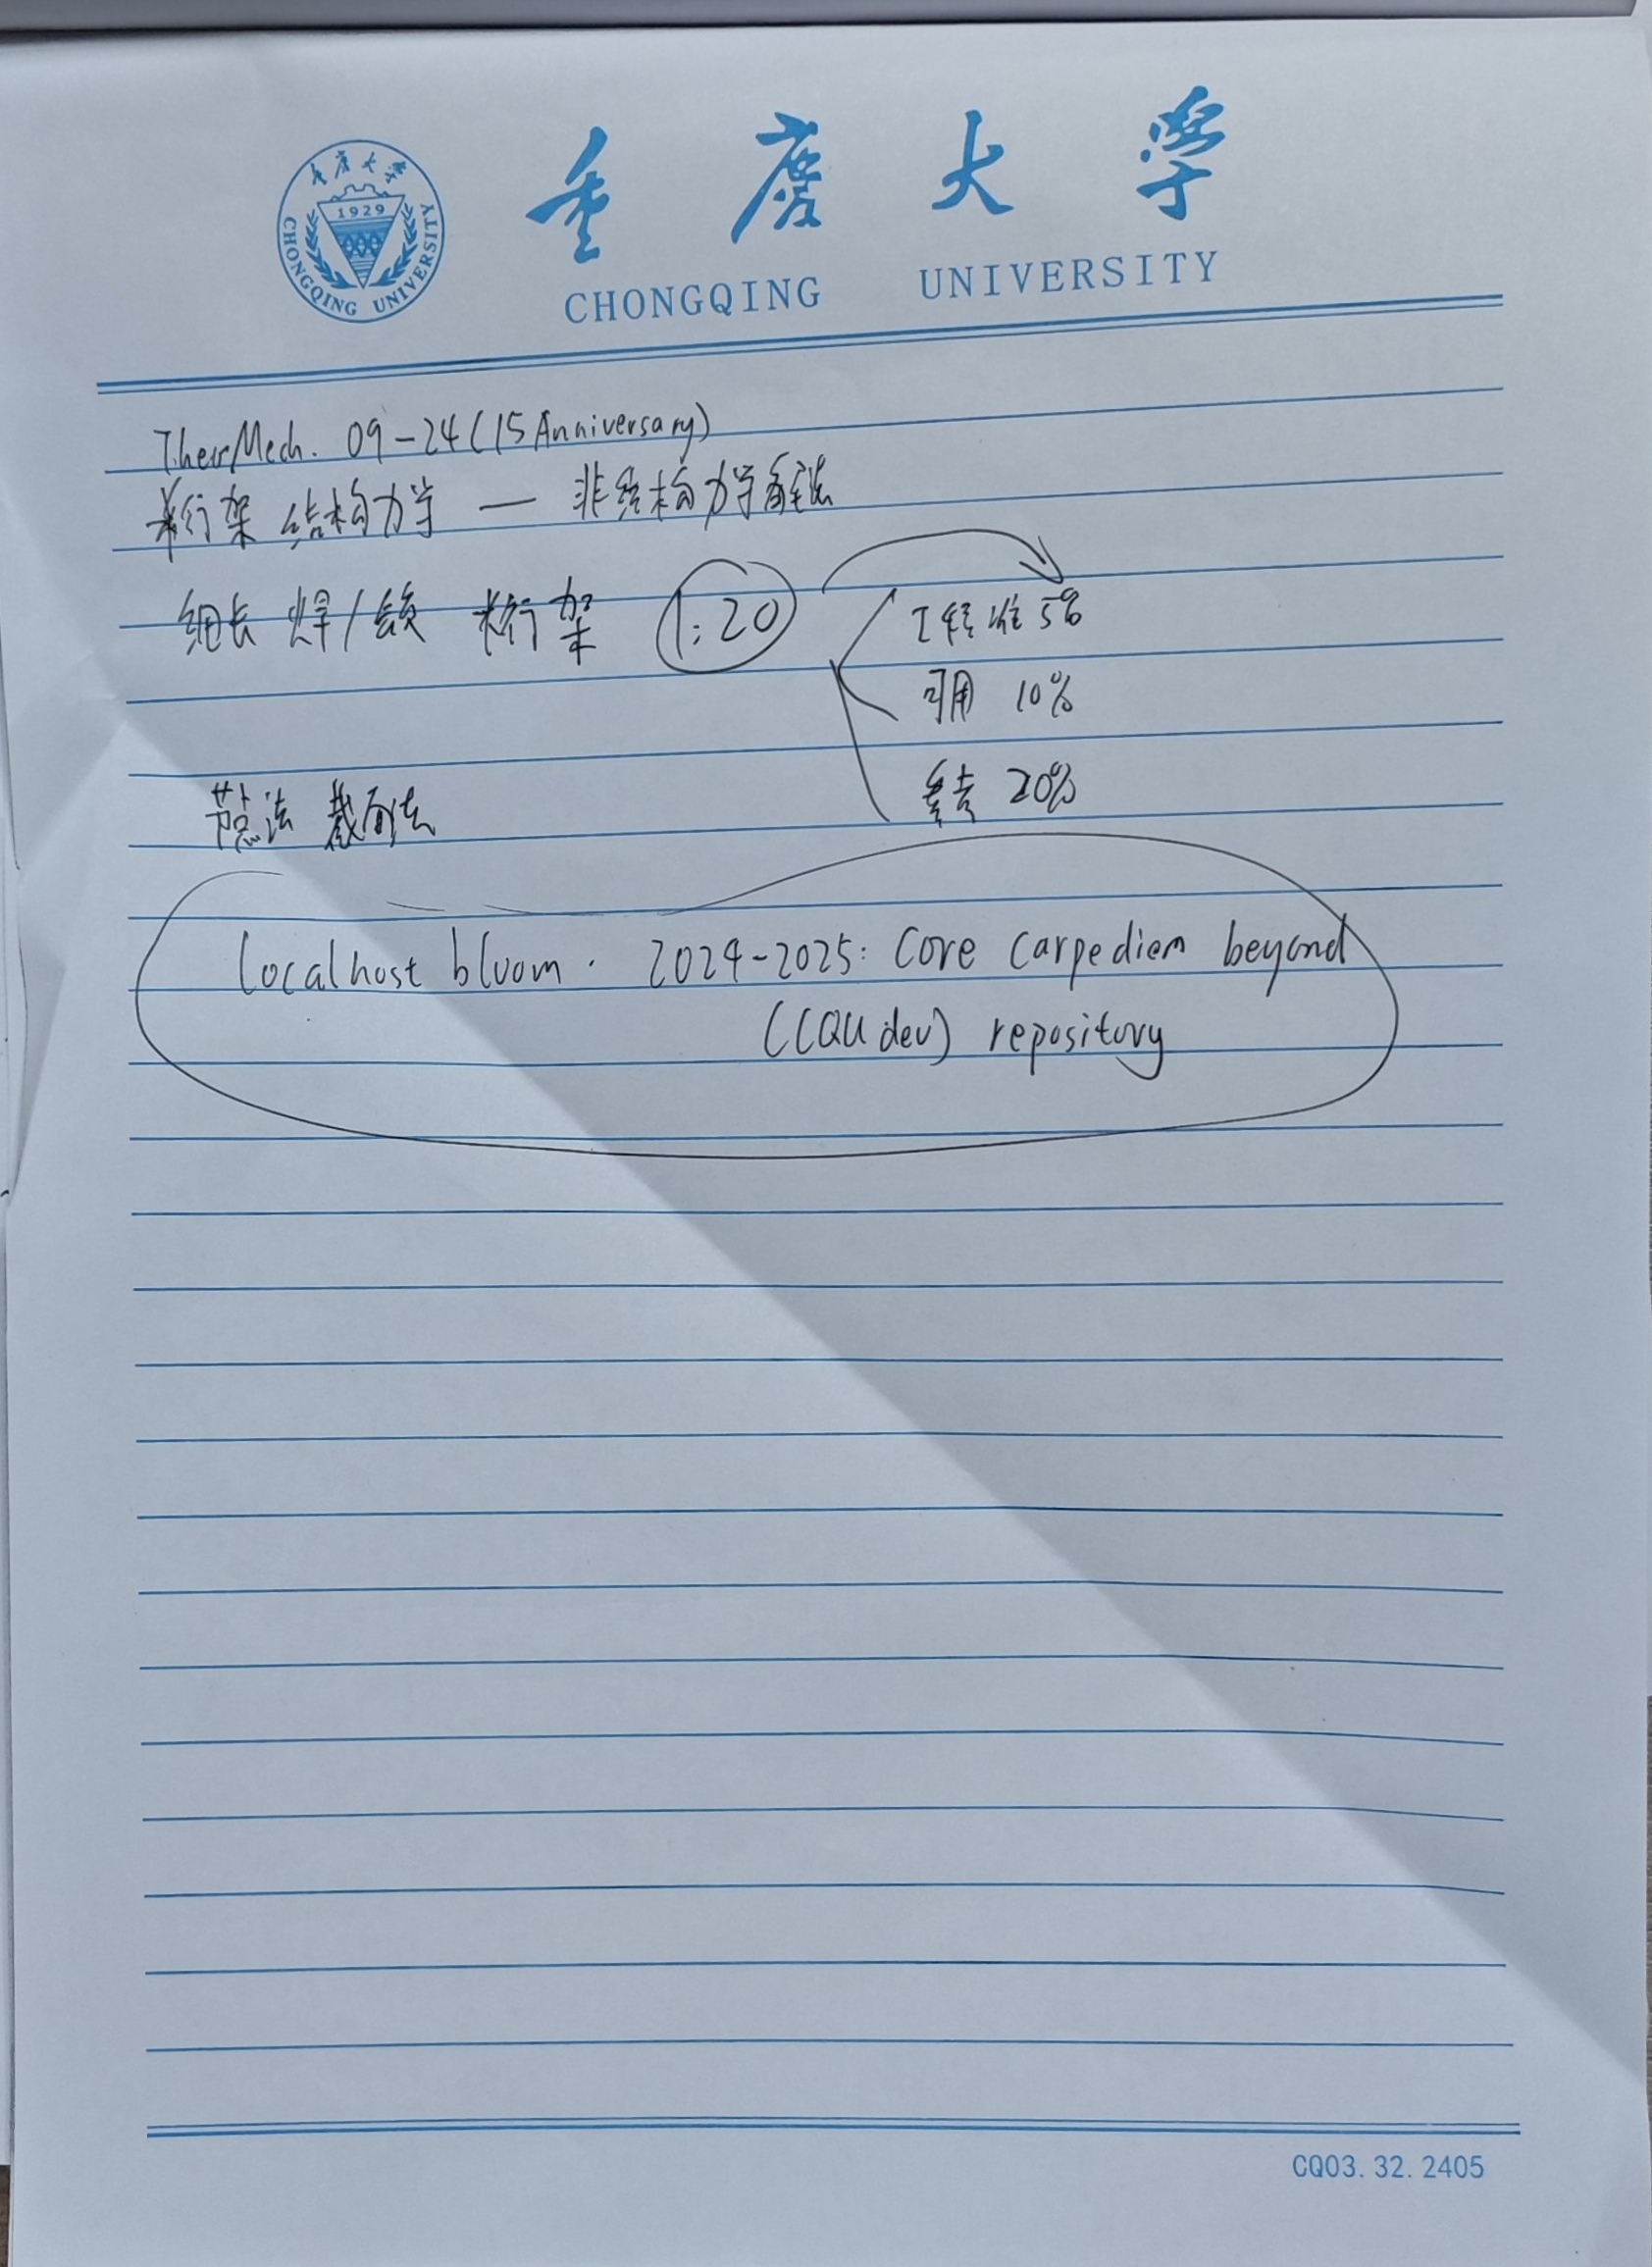 重庆大学
1929
CHONGQING UNIVERSITY
重庆大学
CHONGQING UNIVERSITY
TherMech. 09-24 (15 Anniversary)
桁架 结构力学 — 非结构力学解法
细长 焊/铆 桁架 1:20
工程准 5%
可用 10%
20%
节点法 截面法
localhost bloom · 2024-2025: Core carpediem beyond
(CQU dev) repository
CQ03.32.2405